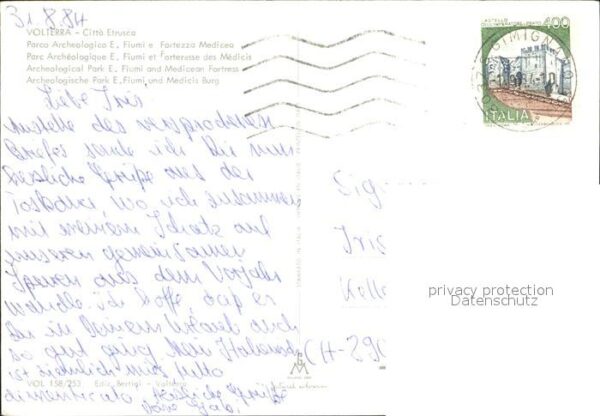 31.8.84
VOLTERRA - Città Etrusca
Parco Archeologico E. Fiumi e Fortezza Medicea
Parc Archéologique E. Fiumi et Forteresse des Médicis
Archeological Park E. Fiumi and Medicean Fortress
Archeologische Park E. Fiumi und Medicis Burg
Liebe Iris
Anstelle des versprochenen
Briefes sende ich Dir nun
herzliche Grüße aus der
Toskana, wo ich zusammen
mit meinem Schatz auf
unseren gemeinsamen
Spuren aus dem Vorjahr
wandle. Ich hoffe, daß es
Dir in Deinem Urlaub auch
so gut ging. Mein
ist ziemlich
dimenticato. Herzliche Grüße
VOL 158/253 Ediz. Bertigi - Volterra
400
ITALIA
Sig.
Iris
CH-390
privacy protection
Datenschutz